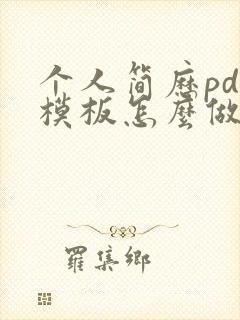 个人简历pd
模板怎麼做
羅集鄉